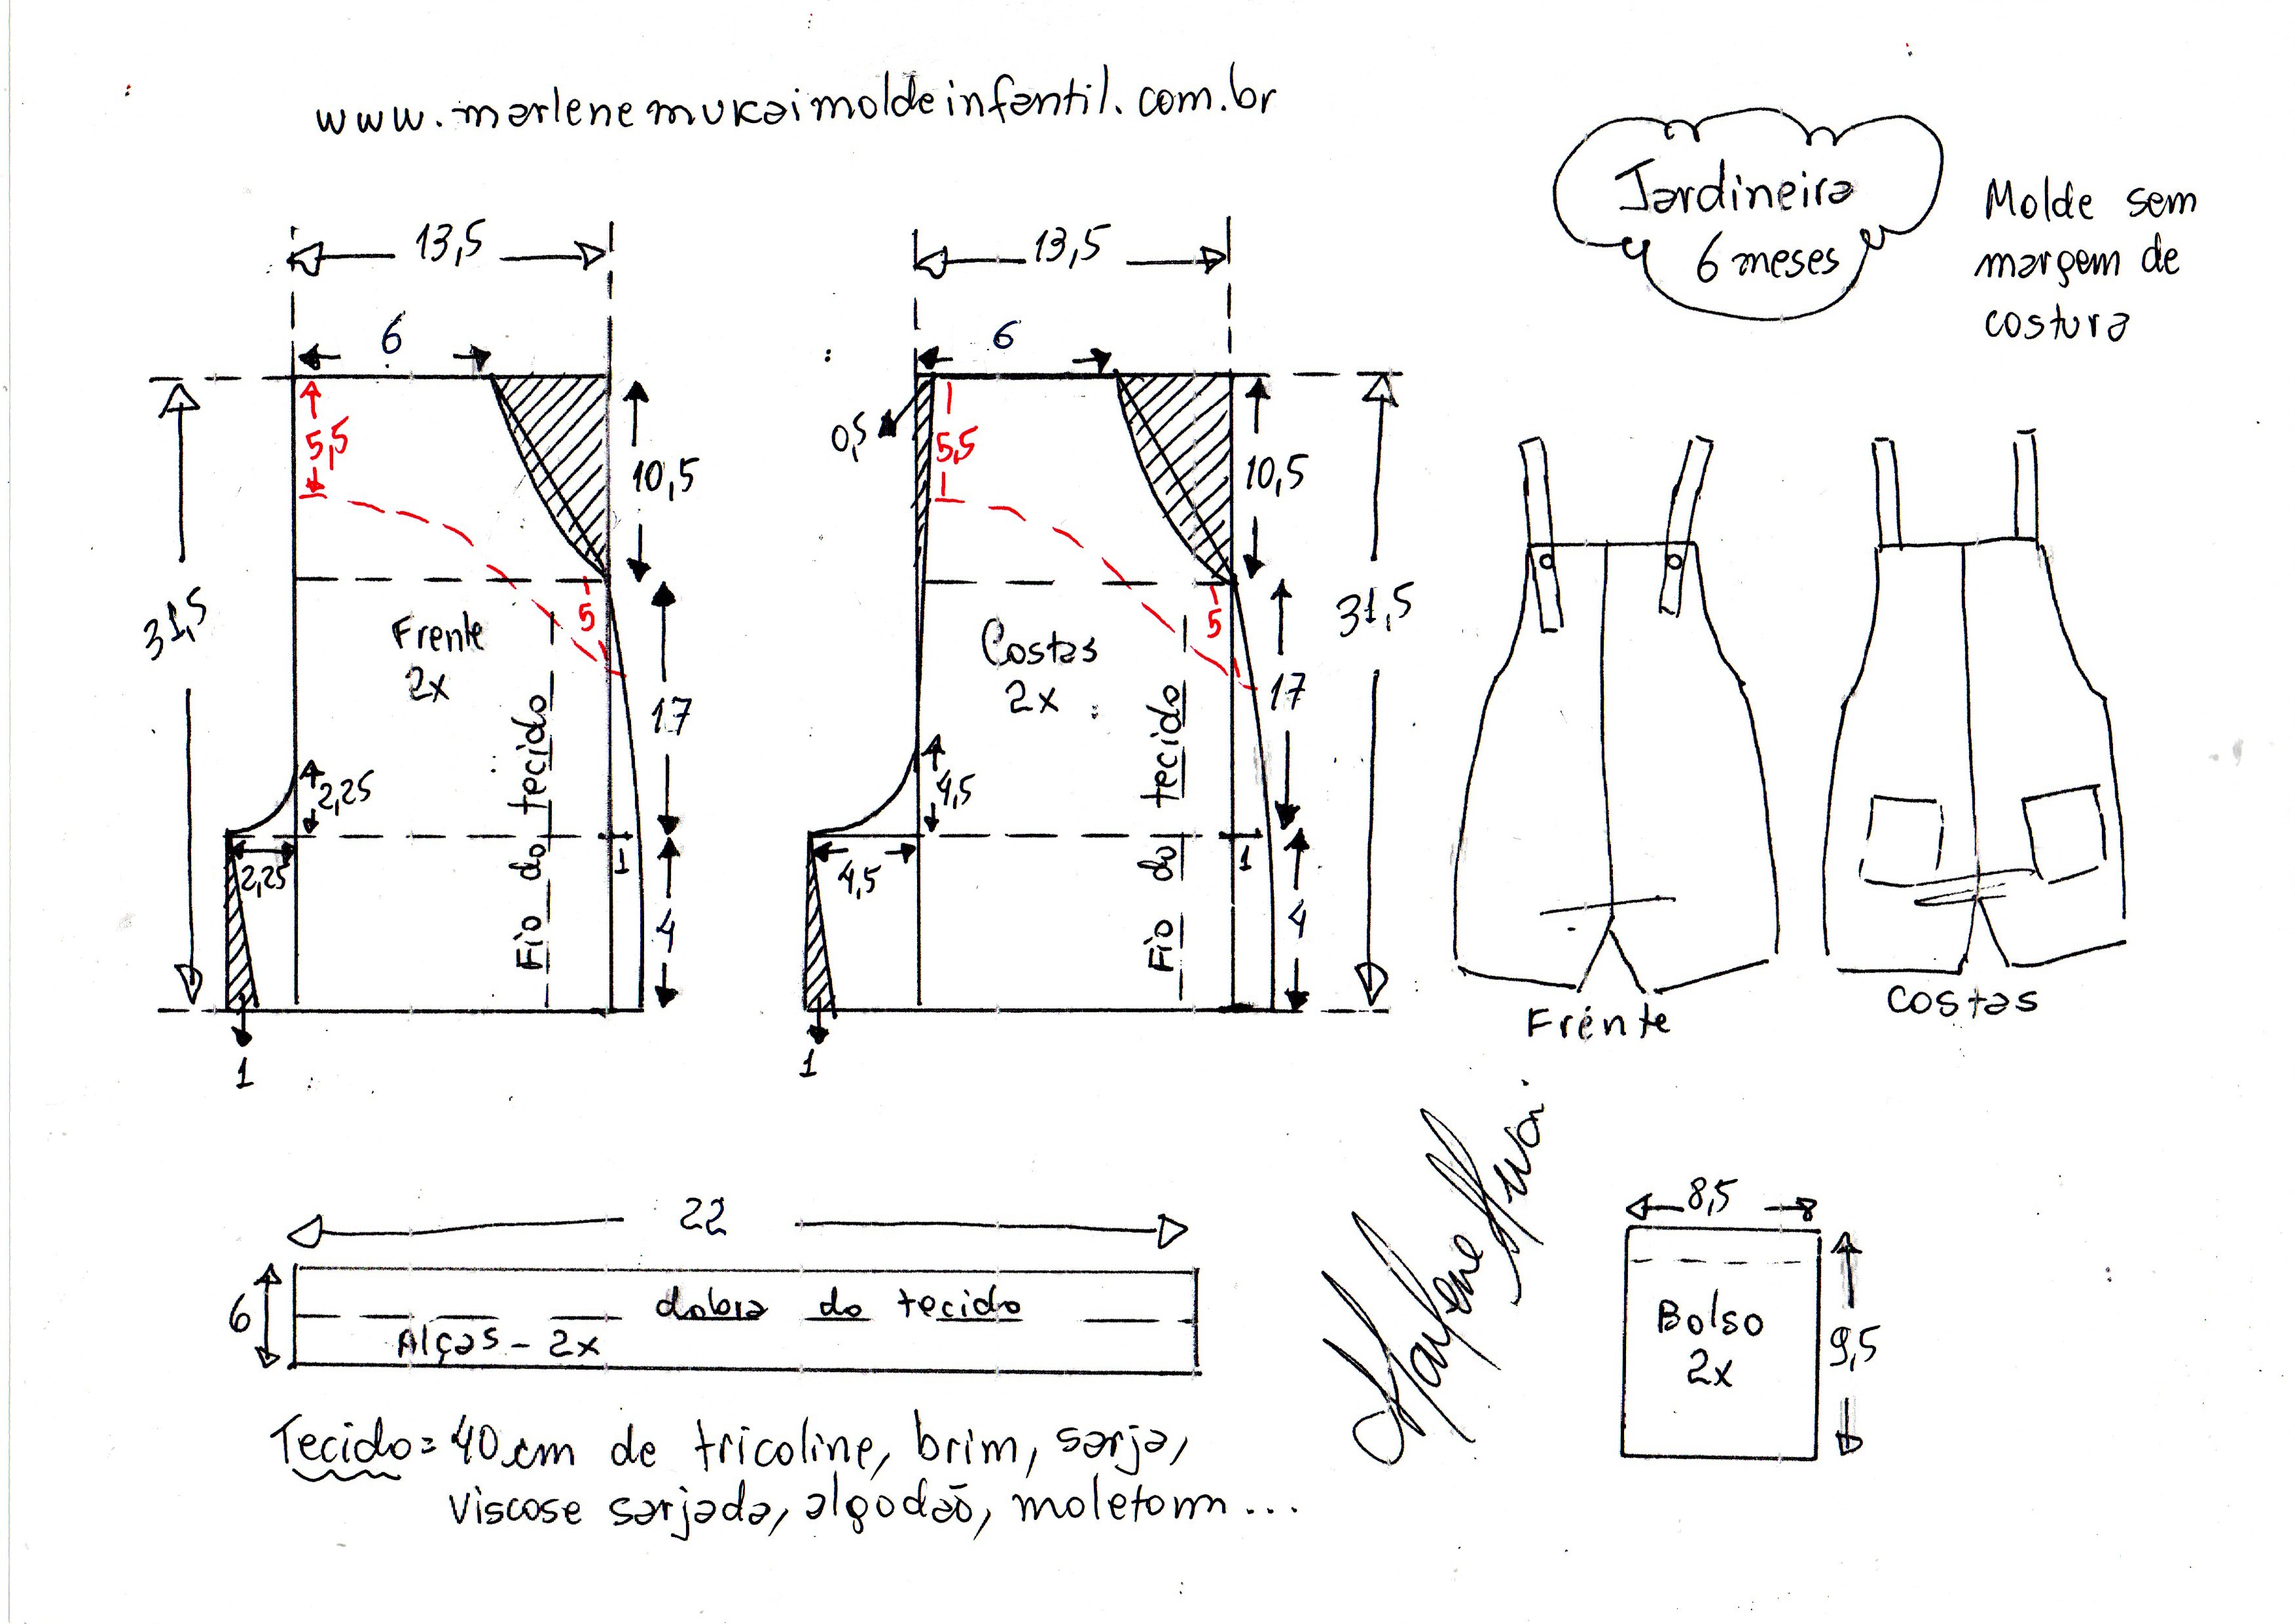 www.marlenemukaimoldeinfantil.com.br
Jardineira
6 meses
Molde sem
margem de
costura
13,5
6
5,5
10,5
31,5
5
Frente
2x
17
2,25
2,25
1
4
Fio do tecido
1
13,5
6
0,5
5,5
10,5
31,5
5
Costas
2x
17
4,5
4,5
1
4
Fio do tecido
1
Frente
Costas
22
6
dobra do tecido
Alças - 2x
Marlene Mukai
8,5
Bolso
2x
9,5
Tecido = 40cm de tricoline, brim, sarja,
viscose sarjada, algodão, moletom...